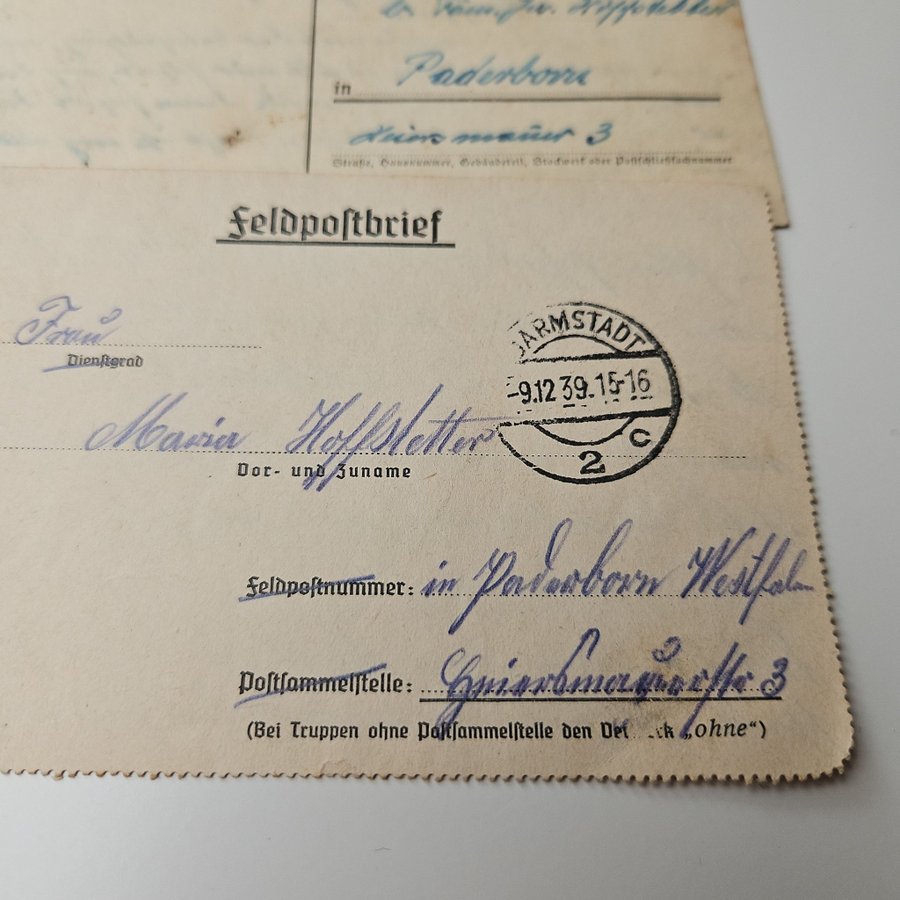 Hoffstetter
in Paderborn
mauer 3
Straße, Hausnummer, Gebäudeteil, Stockwerk oder Postschließfachnummer
Feldpostbrief
Frau
Dienstgrad
DARMSTADT
-9.12.39.15-16
c
2
Maria Hoffstetter
Vor- und Zuname
Feldpostnummer: in Paderborn Westfalen
Postsammelstelle: Geiersmauerstr 3
(Bei Truppen ohne Postsammelstelle den "ohne")